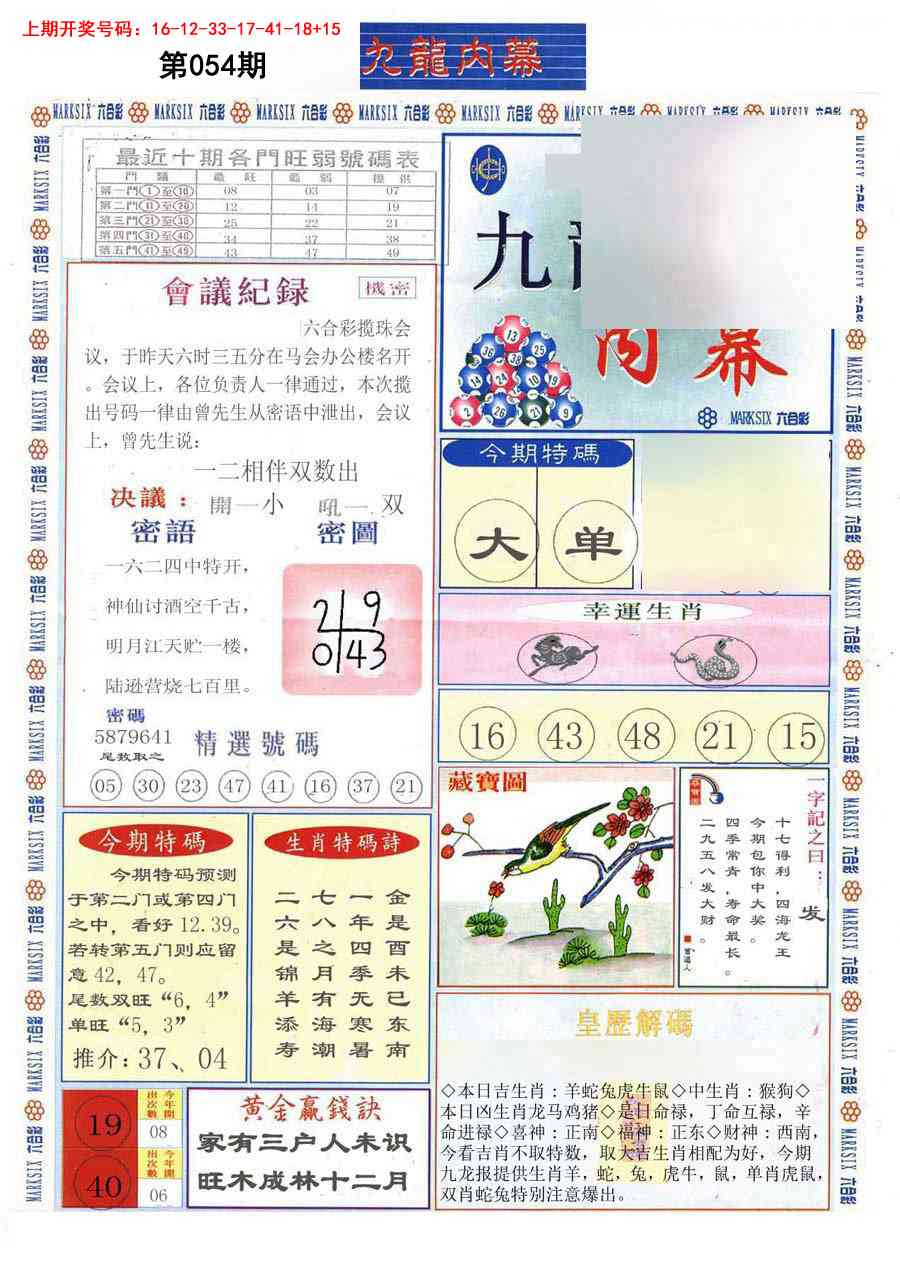 上期开奖号码：16-12-33-17-41-18+15
第054期
九龍内幕
MARKSIX 六合彩
最近十期各門旺弱號碼表
門 類 最 旺 最 弱 提 供
第一門①至⑩ 08 03 07
第二門⑪至⑳ 12 14 19
第三門㉑至㉚ 25 22 21
第四門㉛至㊵ 34 37 38
第五門㊶至㊾ 43 47 49
會議紀録
機密
六合彩揽珠会
议，于昨天六时三五分在马会办公楼名开
。会议上，各位负责人一律通过，本次揽
出号码一律由曾先生从密语中泄出，会议
上，曾先生说：
一二相伴双数出
决議：開一小 吼一双
密語
一六二四中特开，
神仙讨酒空千古，
明月江天贮一楼，
陆逊营烧七百里。
密圖
2 9
0 43
密碼
5879641
尾数取之
精選號碼
05 30 23 47 41 16 37 21
九
内幕
13
36 38 25
14 24 10 19
2 26 21 9
MARKSIX 六合彩
今期特碼
大 单
幸運生肖
16 43 48 21 15
藏寶圖
一字記之曰：发
十七得利，四海龙王
今期包你中大奖。
四季常青，寿命最长。
二九五八发大财。
今期特碼
今期特码预测
于第二门或第四门
之中，看好 12.39。
若转第五门则应留
意 42，47。
尾数双旺“6，4”
单旺“5，3”
推介：37、04
生肖特碼詩
金是酉未已东南
一年四季无寒暑
七八之月有海潮
二六是锦羊添寿
19
今年開出次數
08
40
今年開出次數
06
黄金赢錢訣
家有三户人未识
旺木成林十二月
皇歷解碼
◇本日吉生肖：羊蛇兔虎牛鼠◇中生肖：猴狗◇
本日凶生肖龙马鸡猪◇是日命禄，丁命互禄，辛
命进禄◇喜神：正南◇福神：正东◇财神：西南，
今看吉肖不取特数，取大吉生肖相配为好，今期
九龙报提供生肖羊，蛇，兔，虎牛，鼠，单肖虎鼠，
双肖蛇兔特别注意爆出。